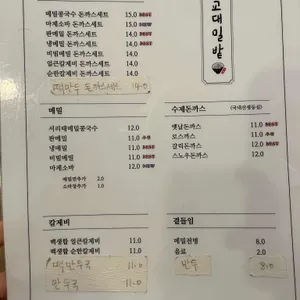 메밀콩국수 돈까스세트 15.0 BEST
마제소바 돈까스세트 15.0
판메밀 돈까스세트 14.0 BEST
냉메밀 돈까스세트 14.0 BEST
비빔메밀 돈까스세트 14.0
얼큰칼제비 돈까스세트 14.0
순한칼제비 돈까스세트 14.0
떡만두 돈까스세트 14.0
고대밀밭
메밀
서리태메밀콩국수 12.0
판메밀 11.0 추천
냉메밀 11.0 BEST
비빔메밀 11.0 BEST
마제소바 12.0
메밀면추가 2.0
소바장추가 1.0
수제돈까스 (국내산생등심)
옛날돈까스 11.0 BEST
로스까스 11.0 추천
갈릭돈까스 12.0 BEST
스노우돈까스 12.0
칼제비
백생합 얼큰칼제비 11.0
백생합 순한칼제비 11.0
떡만두국 11.0
만두국 11.0
곁들임
메밀전병 8.0
음료 2.0
만두 8.0